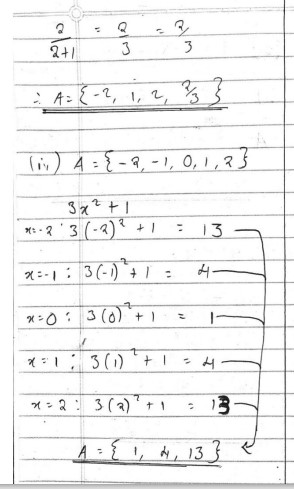 2/2+1 = 2/3 = 2/3
∴ A = {-2, 1, 2, 2/3}
(ii) A = {-2, -1, 0, 1, 2}
3x² + 1
x=-2 : 3(-2)² + 1 = 13
x=-1 : 3(-1)² + 1 = 4
x=0 : 3(0)² + 1 = 1
x=1 : 3(1)² + 1 = 4
x=2 : 3(2)² + 1 = 13
A = {1, 4, 13}